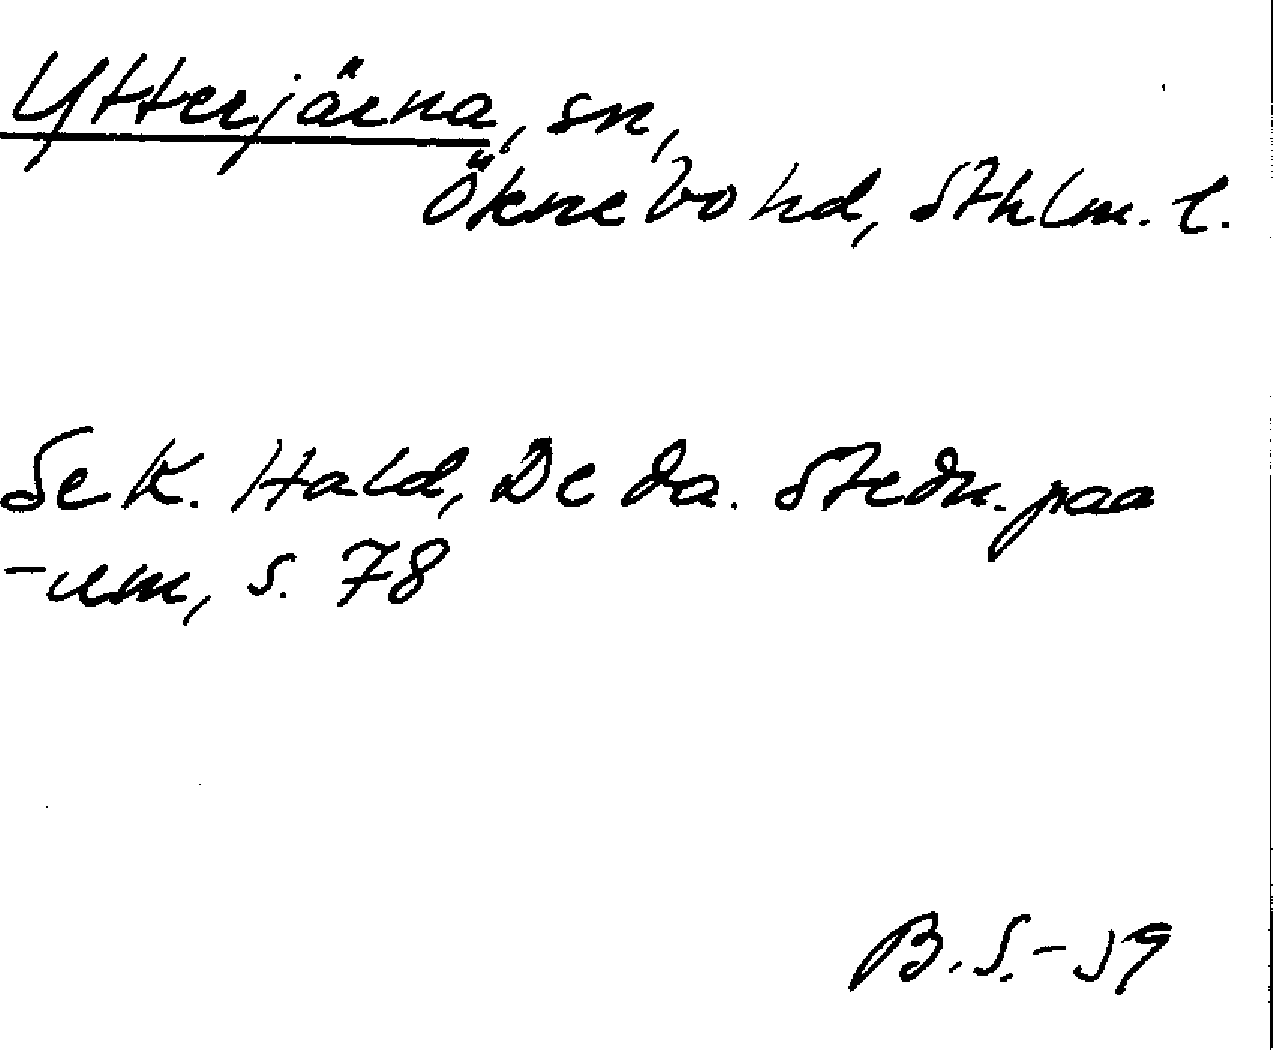 Ytterjärna, sn,
Öknebo hd, Sthlm. l.
Se K. Hald, De da. Stedn. paa
-um, s. 78
B.S.-59